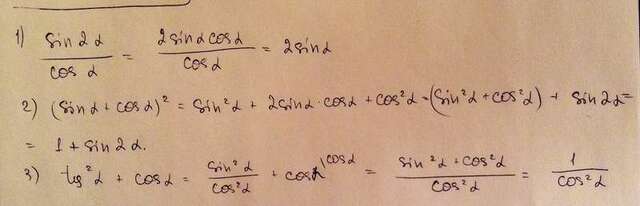 1) sin 2α / cos α = 2 sin α cos α / cos α = 2 sin α
2) (sin α + cos α)² = sin² α + 2 sin α · cos α + cos² α = (sin² α + cos² α) + sin 2α =
= 1 + sin 2α.
3) tg² α + cos α = sin² α / cos² α + cos α^cos α = sin² α + cos² α / cos² α = 1 / cos² α